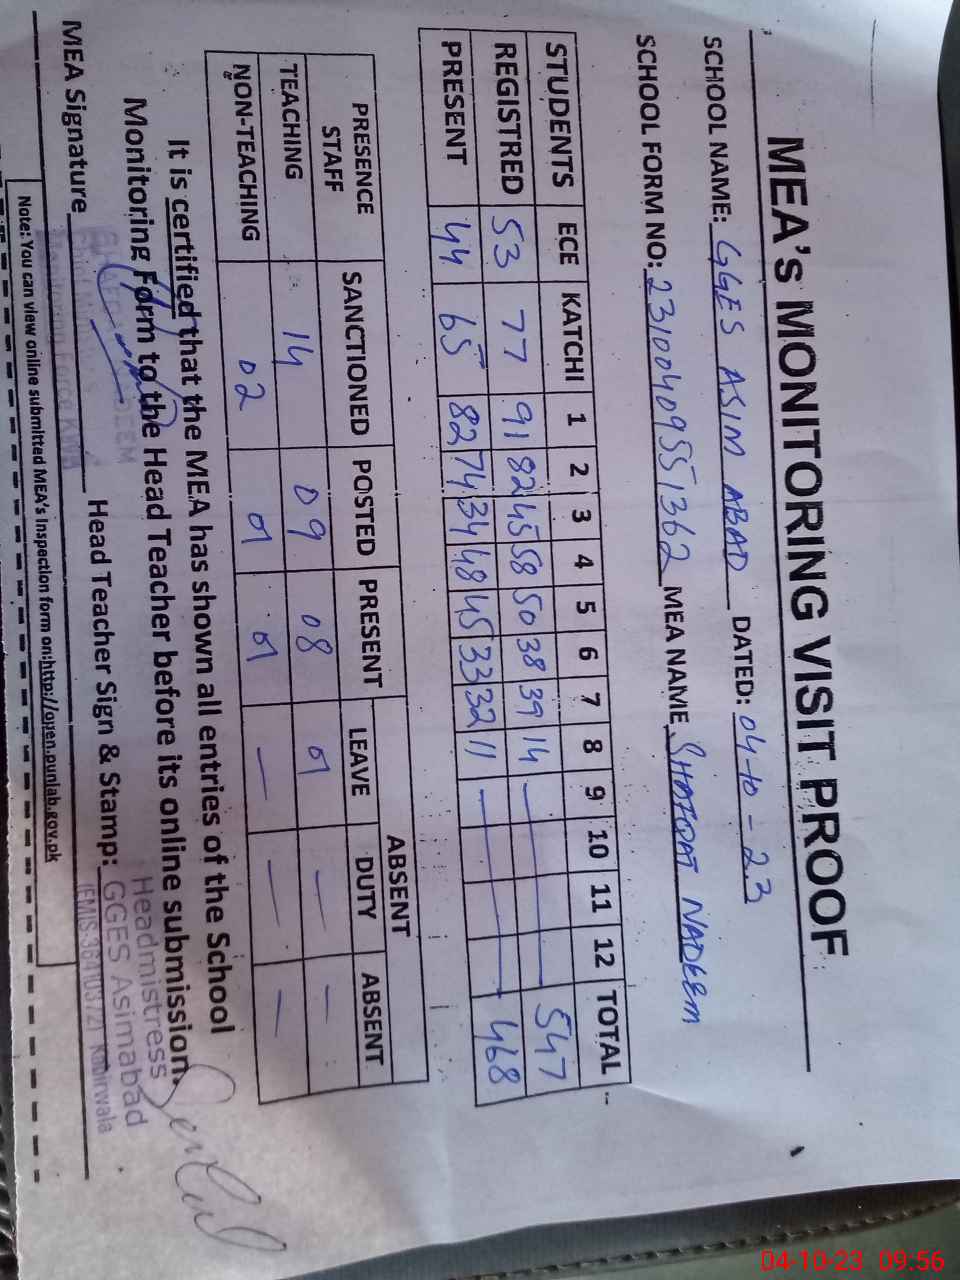 MEA's MONITORING VISIT PROOF
SCHOOL NAME: GGES ASIM ABAD DATED: 04-10-23
SCHOOL FORM NO: 23100409551362 MEA NAME SHAFQAT NADEEM
STUDENTS ECE KATCHI 1 2 3 4 5 6 7 8 9 10 11 12 TOTAL
REGISTRED 53 77 91 82 45 58 50 38 39 14 — 547
PRESENT 44 65 82 74 34 48 45 33 32 11 — 468
PRESENCE STAFF SANCTIONED POSTED PRESENT ABSENT
LEAVE DUTY ABSENT
TEACHING 14 09 08 01 — —
NON-TEACHING 02 01 01 — — —
It is certified that the MEA has shown all entries of the School
Monitoring Form to the Head Teacher before its online submission.
MEA Signature Head Teacher Sign & Stamp:
Headmistress
GGES Asimabad
Kabirwala
Note: You can view online submitted MEA's Inspection form on:http://open.punjab.gov.pk
04-10-23 09:56